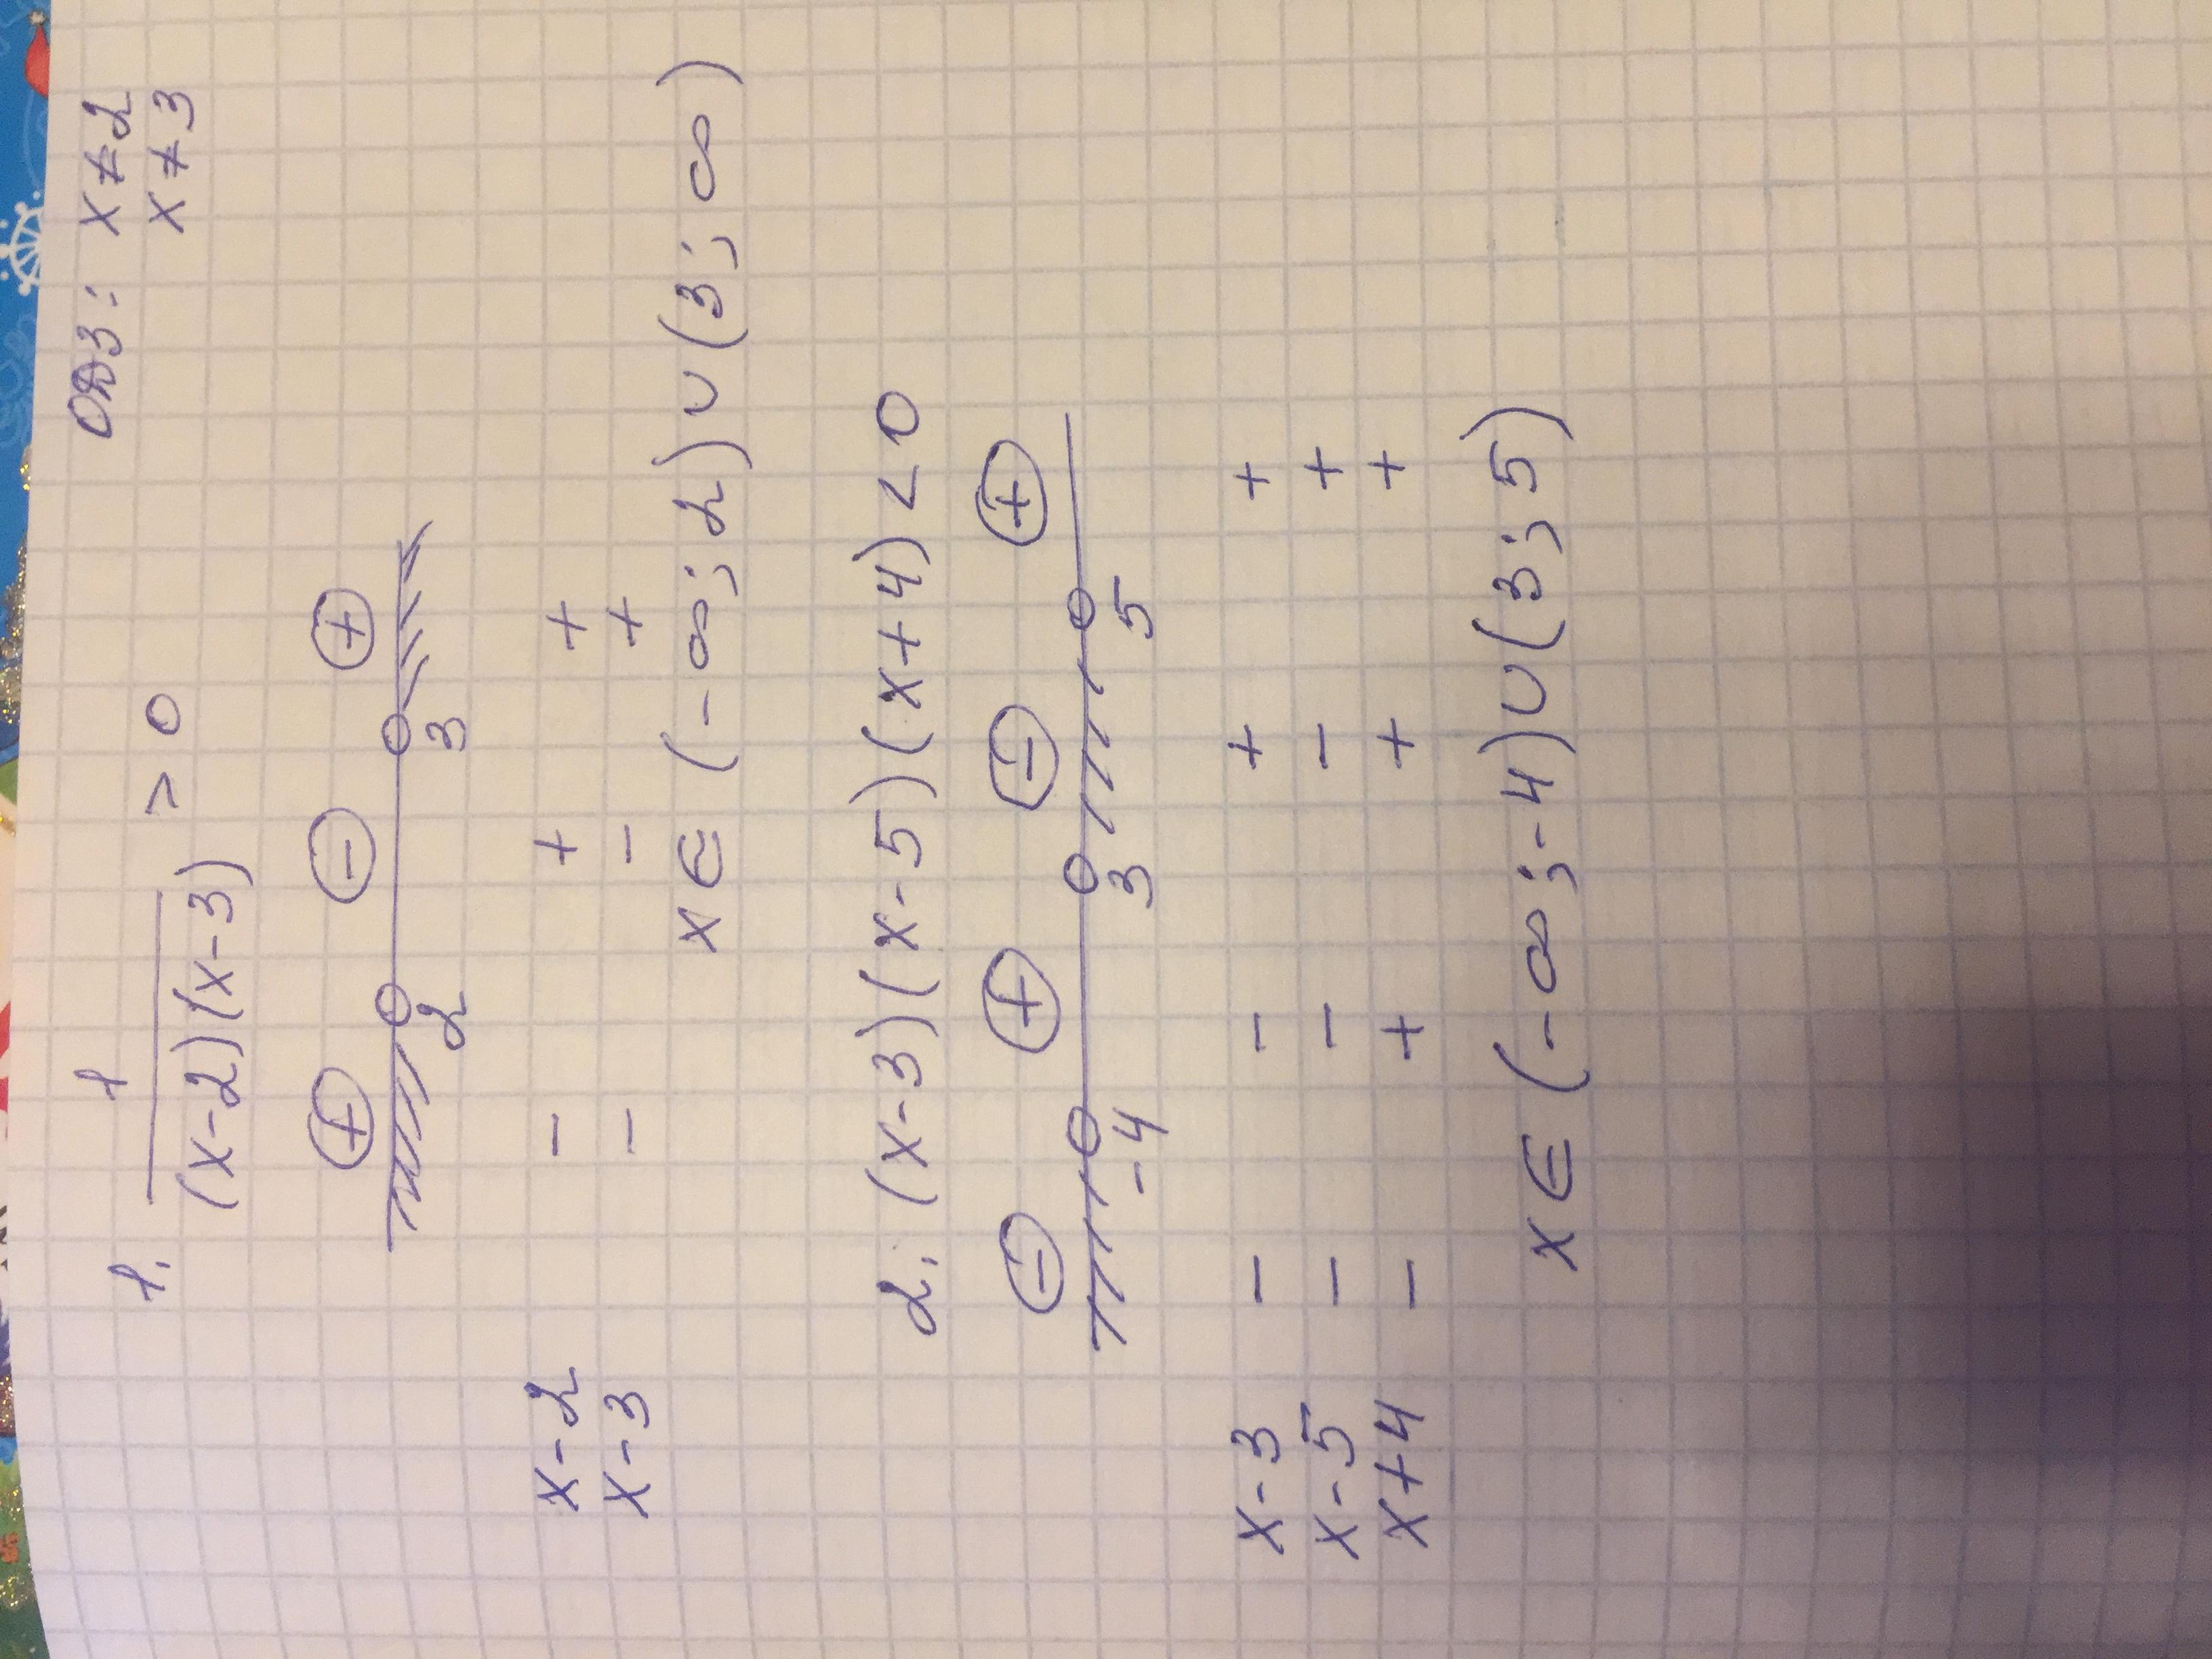 1. 1/((x-2)(x-3)) > 0 ОДЗ: x≠2
x≠3
⊕ ⊖ ⊕
2 3
x-2 - + +
x-3 - - +
x∈(-∞;2)∪(3;∞)
2. (x-3)(x-5)(x+4)<0
⊖ ⊕ ⊖ ⊕
-4 3 5
x-3 - - + +
x-5 - - - +
x+4 - + + +
x∈(-∞;-4)∪(3;5)